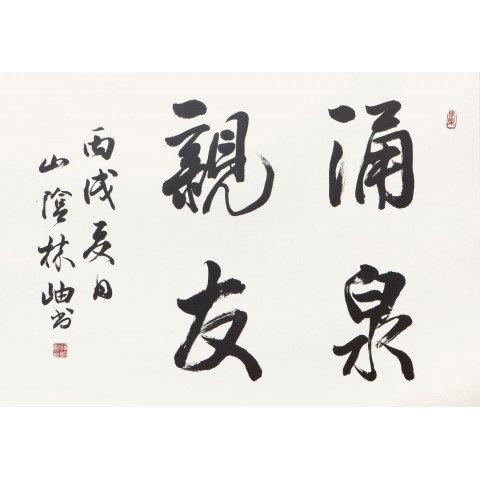 涌泉
親友
丙戌夏日
山陰林岫書